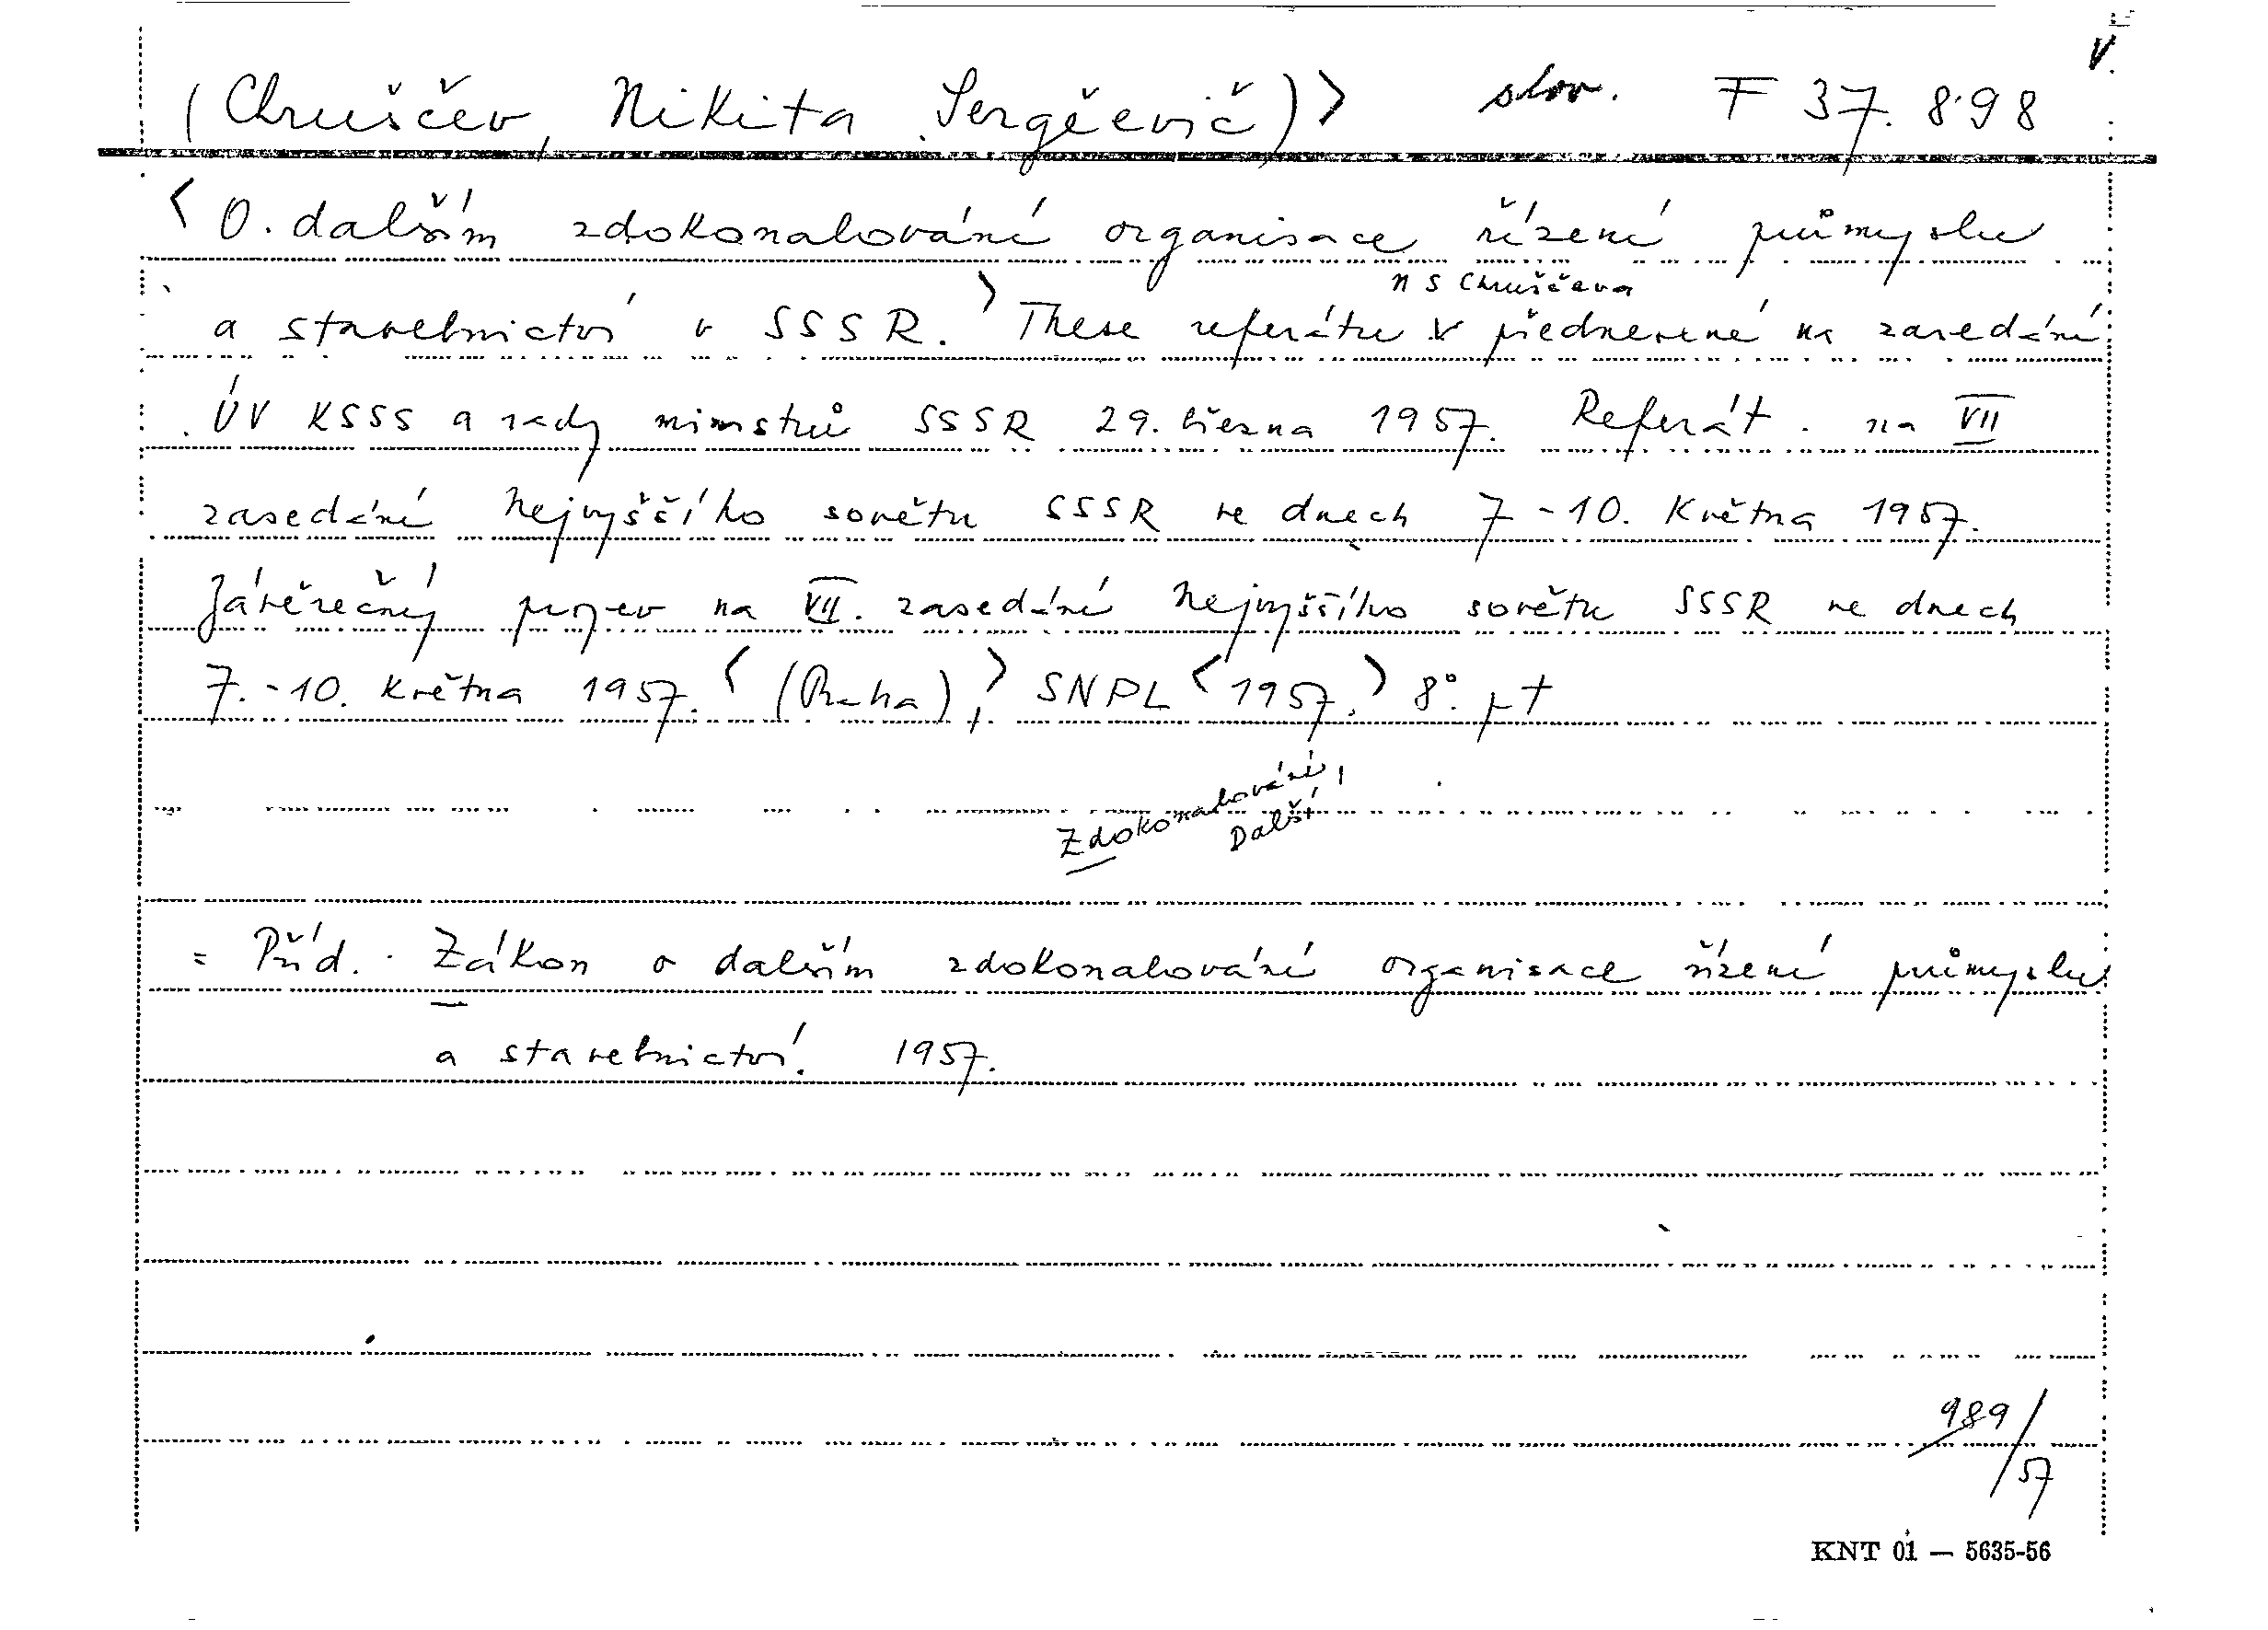 V.
(Chruščev, Nikita Sergěevič)> slov. F 37.898
<O dalším zdokonalování organisace řízení průmyslu
N S Chruščeva
a stavebnictví v SSSR.> These referátu V přednesené na zasedání
ÚV KSSS a rady ministrů SSSR 29. března 1957. Referát na VII
zasedání Nejvyššího sovětu SSSR ve dnech 7-10. Května 1957.
Závěrečný projev na VII. zasedání Nejvyššího sovětu SSSR ve dnech
7.-10. Května 1957. <(Praha),> SNPL <1957.> 8°.
Zdokonalování,
Další
= Příd. Zákon o dalším zdokonalování organisace řízení průmyslu
a stavebnictví. 1957.
989/57
KNT 01 — 5635-56